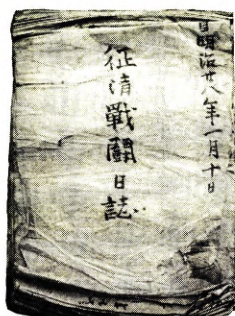 自明治廿八年一月十日
征清戰鬪日誌